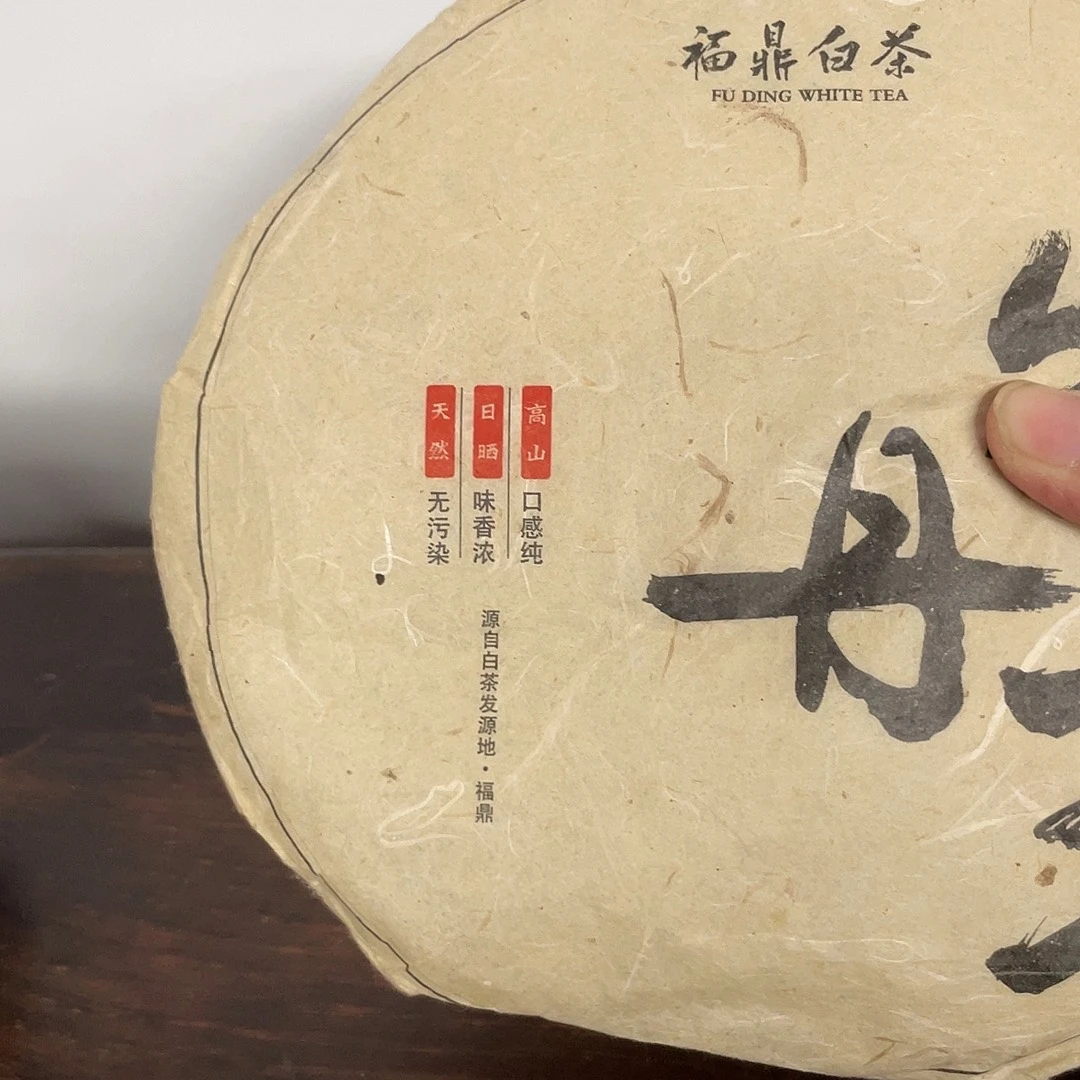 福鼎白茶
FU DING WHITE TEA
高山
口感纯
日晒
味香浓
天然
无污染
源自白茶发源地·福鼎